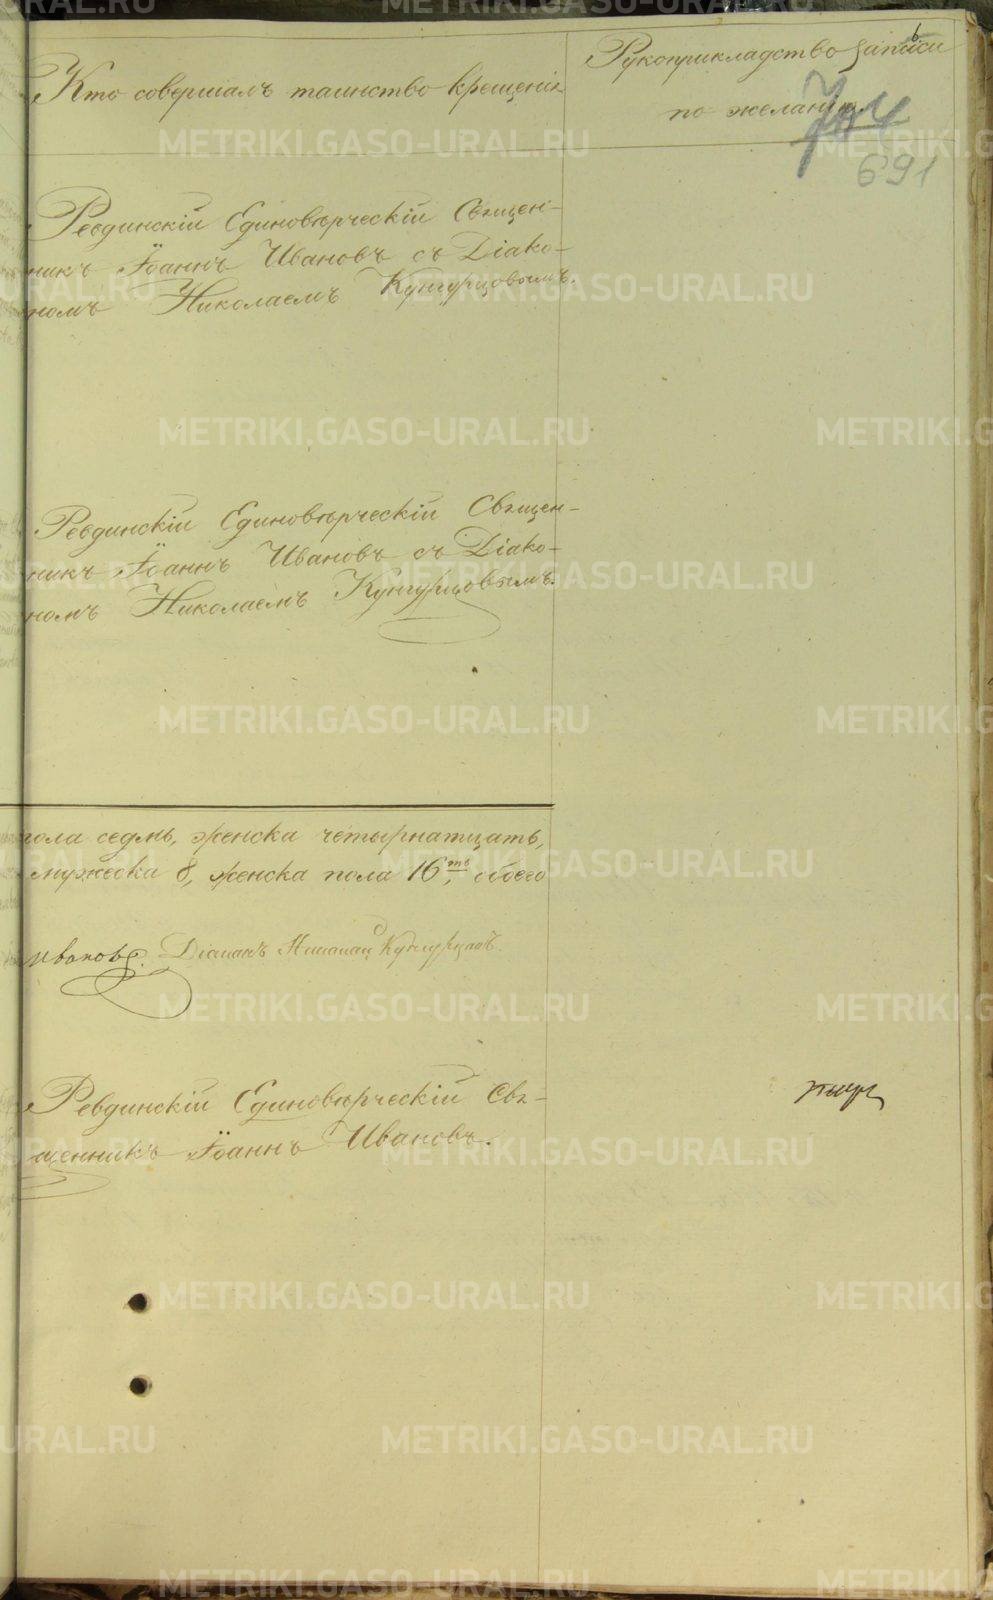 6
Кто совершалъ таинство крещенія
Рукоприкладство записи
по желанію.
691
Ревдинскій Единовѣрческій Священ-
никъ Іоаннъ Ивановъ съ Діако-
номъ Николаемъ Кунгурцовымъ.
Ревдинскій Единовѣрческій Священ-
никъ Іоаннъ Ивановъ съ Діако-
номъ Николаемъ Кунгурцовымъ.
пола седмь, женска четырнатцать,
мужеска 8, женска пола 16ть, обоего
Ивановъ. Діаконъ Николай Кунгурцовъ.
Ревдинскій Единовѣрческій Свя-
щенникъ Іоаннъ Ивановъ.
METRIKI.GASO-URAL.RU